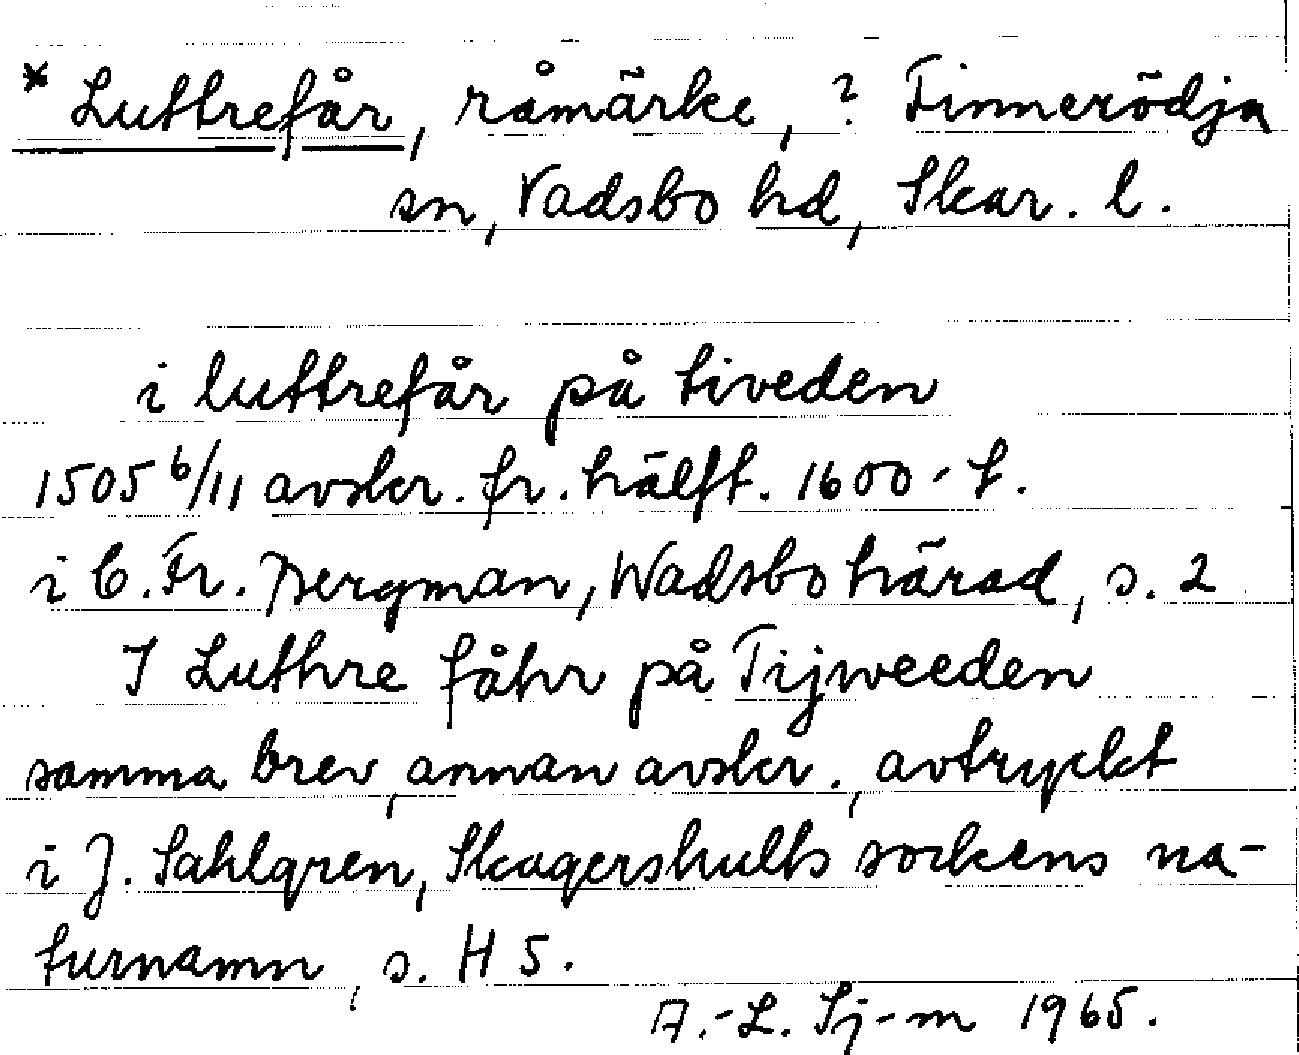 * Luttrefår, råmärke, ? Finnerödja
sn, Vadsbo hd, Skar. l.
i luttrefår på tiveden
1505 6/11 avskr. fr. hälft. 1600-t.
i C. Fr. Bergman, Wadsbo härad, s. 2
I Luthre fåhr på Tijweeden
samma brev, annan avskr., avtryckt
i J. Sahlgren, Skagershults sockens na-
turnamn, s. H 5.
A.-L. Sj-m 1965.